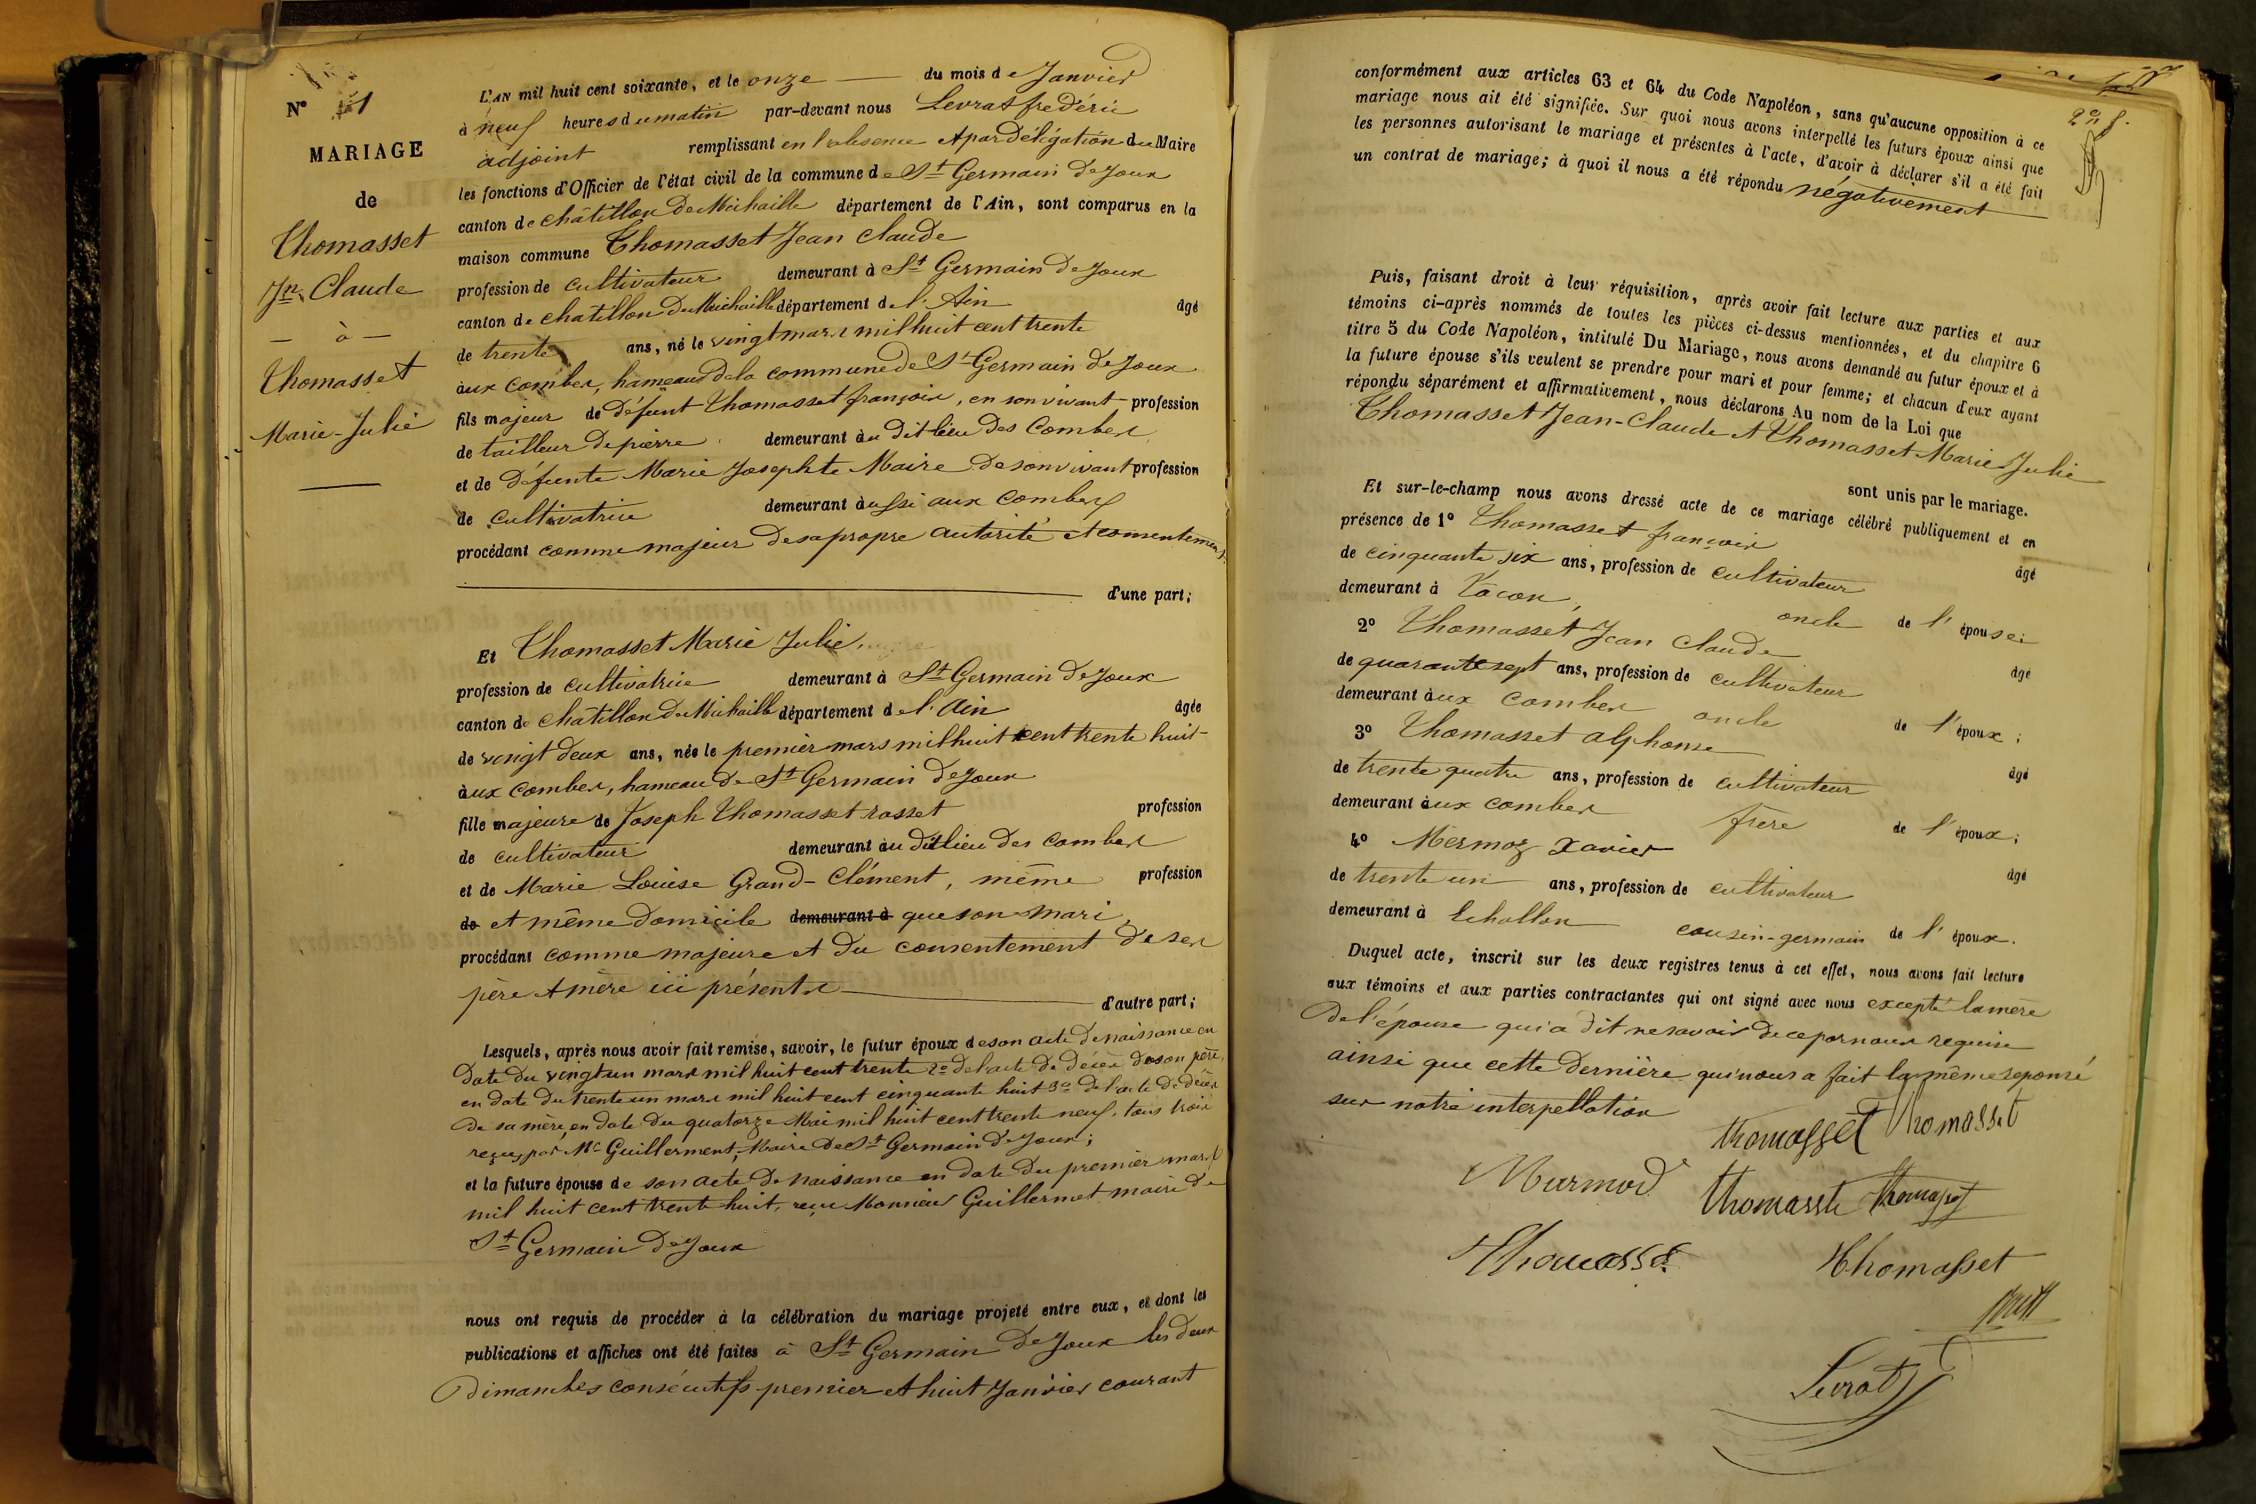 N° 1
MARIAGE
de
Thomasset
Jn Claude
— à —
Thomasset
Marie-Julie
L'AN mil huit cent soixante, et le onze du mois de Janvier
à neuf heures du matin par-devant nous Levrat frédéric
adjoint remplissant en l'absence et par délégation du Maire
les fonctions d'Officier de l'état civil de la commune de St Germain de Joux
canton de châtillon de Michaille département de l'Ain, sont comparus en la
maison commune Thomasset Jean Claude
profession de cultivateur demeurant à St Germain de Joux
canton de chatillon de Michaille département de l'Ain âgé
de trente ans, né le vingt mars mil huit cent trente
aux combes, hameau de la commune de St Germain de Joux
fils majeur de défunt Thomasset françois, en son vivant profession
de tailleur de pierre demeurant au dit lieu des Combes
et de défunte Marie Josephte Maire de son vivant profession
de cultivatrice demeurant aussi aux combes
procédant comme majeur de sa propre autorité et consentement
d'une part;
Et Thomasset Marie Julie,
profession de cultivatrice demeurant à St Germain de Joux
canton de châtillon de Michaille département de l'Ain âgée
de vingt deux ans, née le premier mars mil huit cent trente huit
aux combes, hameau de St Germain de Joux
fille majeure de Joseph Thomasset rosset profession
de cultivateur demeurant au dit lieu des combes
et de Marie Louise Grand-Clément, même profession
de et même domicile demeurant à que son mari,
procédant comme majeure et du consentement de ses
père et mère ici présents d'autre part;
Lesquels, après nous avoir fait remise, savoir, le futur époux de son acte de naissance en
date du vingt un mars mil huit cent trente 2° de l'acte de décès de son père,
en date du trente un mars mil huit cent cinquante huit 3° de l'acte de décès
de sa mère, en date du quatorze Mai mil huit cent trente neuf, tous trois
reçus par Mr Guillerment, Maire de St Germain de Joux;
et la future épouse de son acte de naissance en date du premier mars
mil huit cent trente huit, reçu Monsieur Guillermet maire de
St Germain de Joux
nous ont requis de procéder à la célébration du mariage projeté entre eux, et dont les
publications et affiches ont été faites à St Germain de Joux les deux
dimanches consécutifs premier et huit Janvier courant
2on f.
conformément aux articles 63 et 64 du Code Napoléon, sans qu'aucune opposition à ce
mariage nous ait été signifiée. Sur quoi nous avons interpellé les futurs époux ainsi que
les personnes autorisant le mariage et présentes à l'acte, d'avoir à déclarer s'il a été fait
un contrat de mariage; à quoi il nous a été répondu négativement
Puis, faisant droit à leur réquisition, après avoir fait lecture aux parties et aux
témoins ci-après nommés de toutes les pièces ci-dessus mentionnées, et du chapitre 6
titre 5 du Code Napoléon, intitulé Du Mariage, nous avons demandé au futur époux et à
la future épouse s'ils veulent se prendre pour mari et pour femme; et chacun d'eux ayant
répondu séparément et affirmativement, nous déclarons Au nom de la Loi que
Thomasset Jean-Claude et Thomasset Marie Julie
sont unis par le mariage.
Et sur-le-champ nous avons dressé acte de ce mariage célébré publiquement et en
présence de 1° Thomasset françois âgé
de cinquante six ans, profession de cultivateur
demeurant à Tacon, oncle de l'épouse;
2° Thomasset Jean Claude âgé
de quarante sept ans, profession de cultivateur
demeurant aux combes oncle de l'époux;
3° Thomasset alphonse âgé
de trente quatre ans, profession de cultivateur
demeurant aux combes frère de l'époux;
4° Mermoz Xavier âgé
de trente un ans, profession de cultivateur
demeurant à Echallon cousin-germain de l'époux.
Duquel acte, inscrit sur les deux registres tenus à cet effet, nous avons fait lecture
aux témoins et aux parties contractantes qui ont signé avec nous excepté la mère
de l'épouse qui a dit ne savoir de ce par nous requise
ainsi que cette dernière qui nous a fait la même reponse
sur notre interpellation
thomasset Thomasset
Murmod Thomasset thomasset
Thomasset Thomasset
Levrat